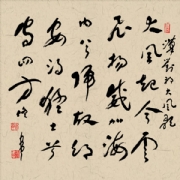 漢劉邦大風歌
大風起兮雲
飛揚威加海
内兮歸故鄉
安得猛士兮
守四方